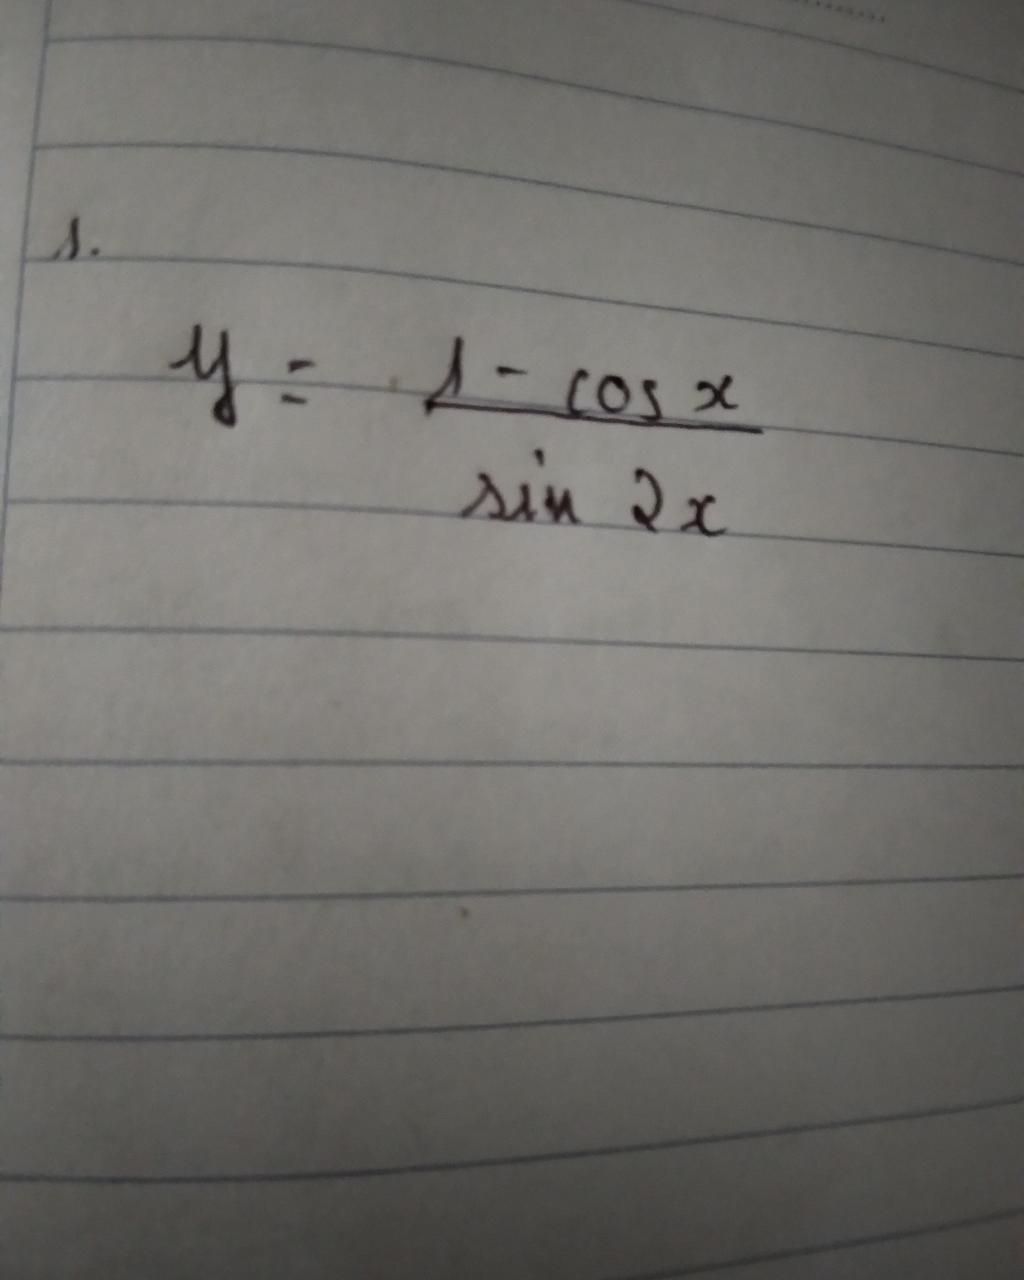 1.
y = 1 - cos x
sin 2x